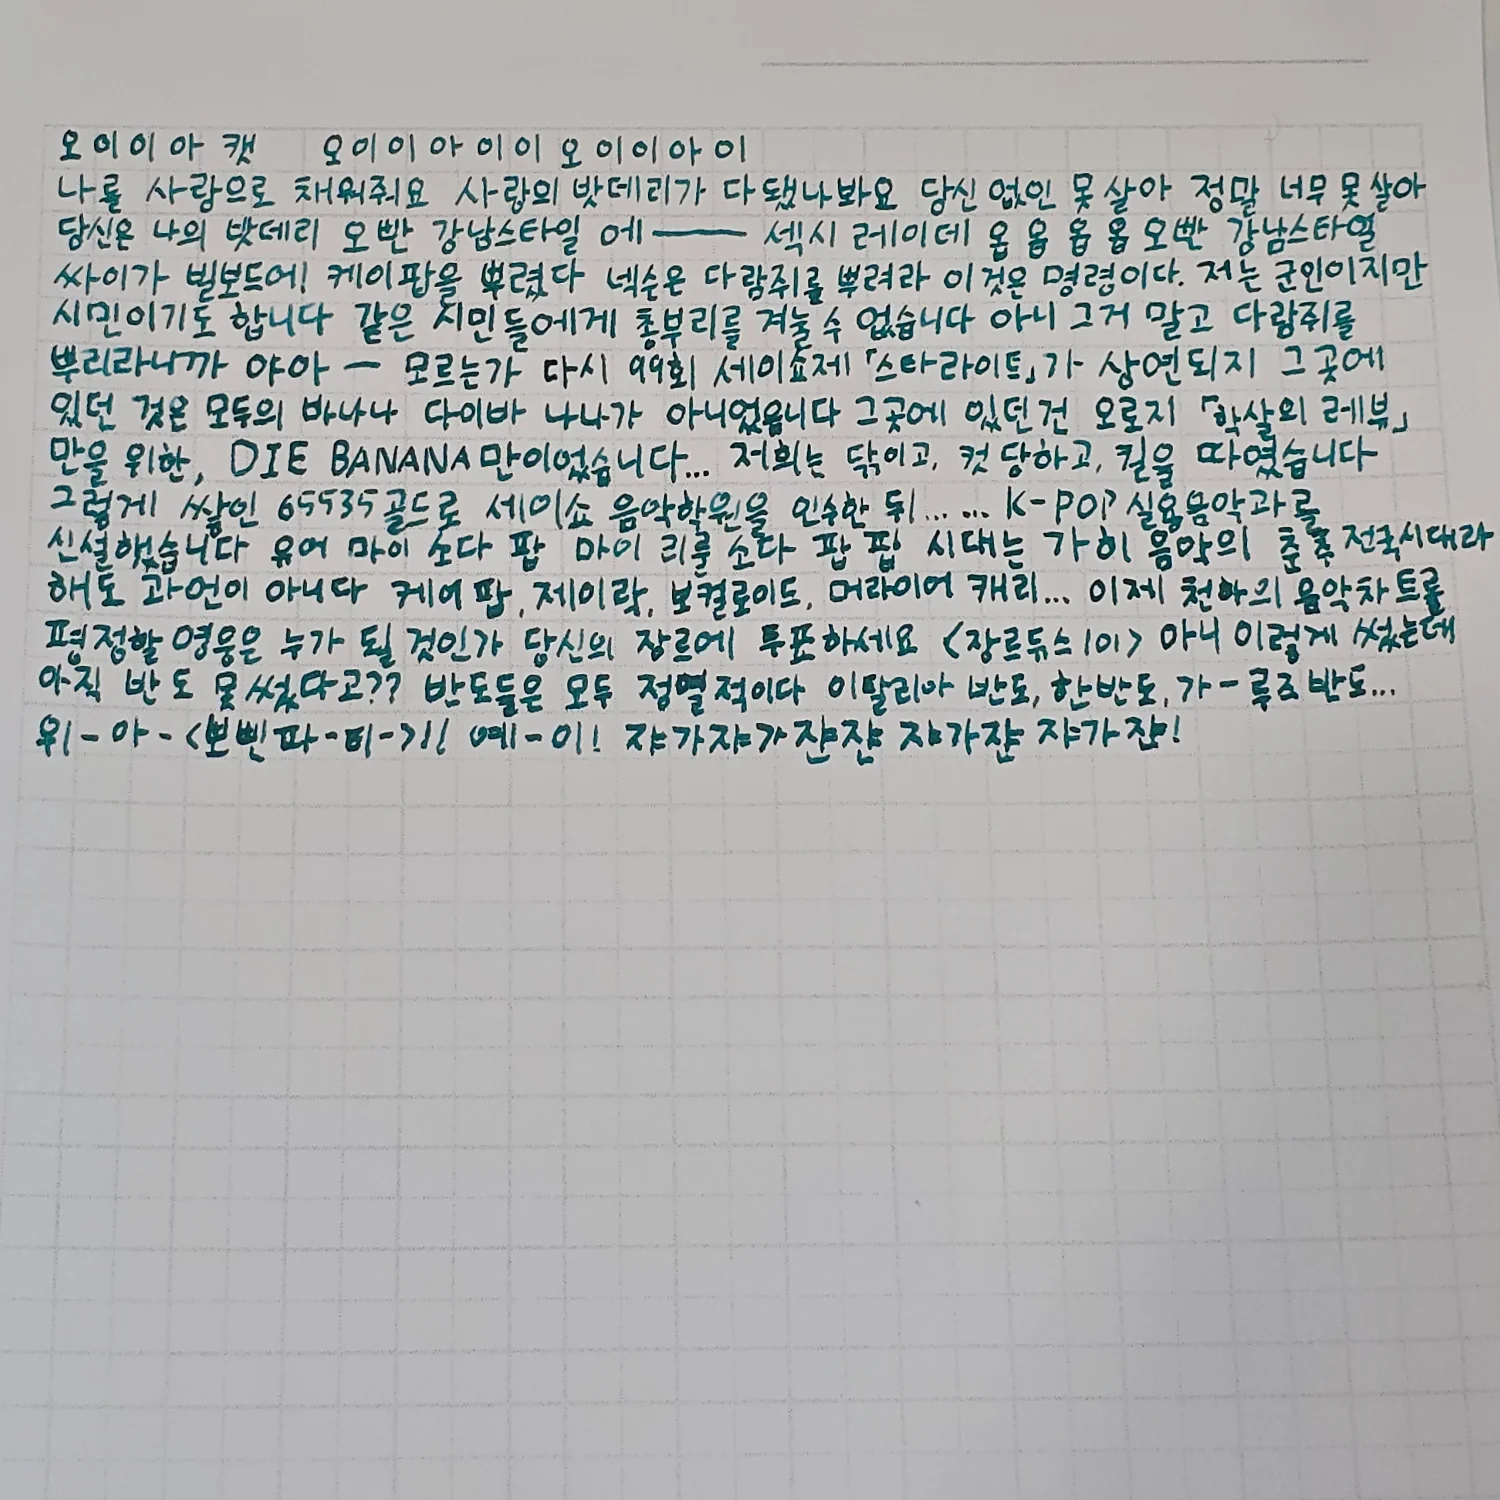 오이이아 캣 오이이아이이오이이아이
나를 사랑으로 채워줘요 사랑의 밧데리가 다 됐나봐요 당신 없인 못 살아 정말 너무 못 살아
당신은 나의 밧데리 오빤 강남스타일 에── 섹시 레이데 옵 옵 옵 옵 오빤 강남스타일
싸이가 빌보드에! 케이팝을 뿌렸다 넥슨은 다람쥐를 뿌려라 이것은 명령이다. 저는 군인이지만
시민이기도 합니다 같은 시민들에게 총부리를 겨눌 수 없습니다 아니 그거 말고 다람쥐를
뿌리라니까 야아 ー 모르는가 다시 99회 세이쇼제 「스타라이트」가 상연되지 그 곳에
있던 것은 모두의 바나나 다이바 나나가 아니었읍니다 그곳에 있던건 오로지 「학살의 레뷰」
만을 위한, DIE BANANA만이었습니다... 저희는 닦이고, 컷 당하고, 킬을 따였습니다
그렇게 쌓인 65535골드로 세이쇼 음악학원을 인수한 뒤... ... K-POP 실용음악과를
신설했습니다 유어 마이 소다 팝 마이 리틀 소다 팝 팝! 시대는 가히 음악의 춘추 전국시대라
해도 과언이 아니다 케이팝, 제이락, 보컬로이드, 머라이어 캐리... 이제 천하의 음악차트를
평정할 영웅은 누가 될 것인가 당신의 장르에 투표하세요 <장르듀스101> 아니 이렇게 썼는데
아직 반 도 못 썼다고?? 반도들은 모두 정열적이다 이탈리아 반도, 한반도, 가-루즈 반도...
위-아-<뽀삔파-티-기! 예-이! 쟈가쟈가쟌쟌 쟈가쟌 쟈가쟌!